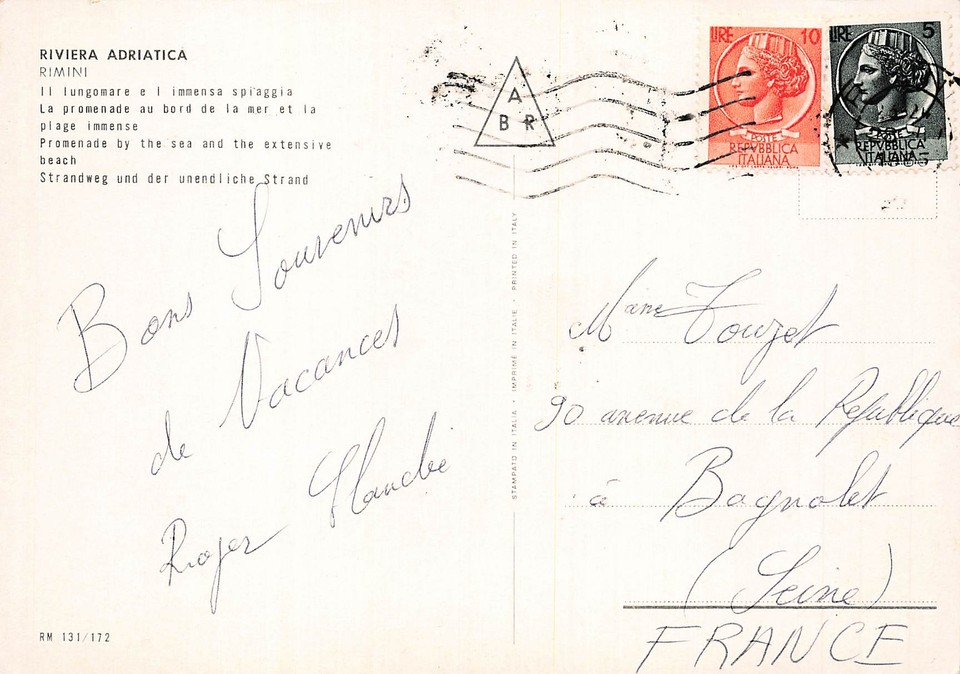 RIVIERA ADRIATICA
RIMINI
Il lungomare e l immensa spiaggia
La promenade au bord de la mer et la
plage immense
Promenade by the sea and the extensive
beach
Strandweg und der unendliche Strand
Bons Souvenirs
de Vacances
Roger
RM 131/172
STAMPATO IN ITALIA • IMPRIMÉ IN ITALIE • PRINTED IN ITALY
A
B R
LIRE 10
POSTE
REPVBBLICA
ITALIANA
LIRE 5
POSTE
REPVBBLICA
ITALIANA
Mme Touzet
90 avenue de la République
à Bagnolet
(Seine)
FRANCE